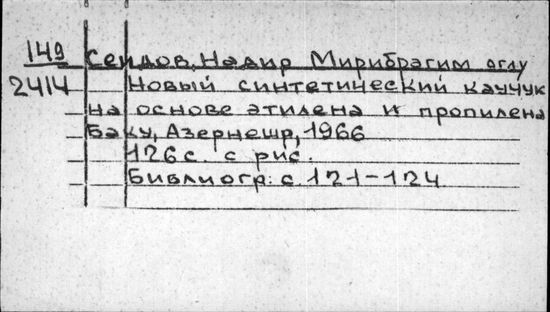 149 Сеидов, Надир Мирибрагим оглу
2414 Новый синтетический каучук
на основе этилена и пропилена
Баку, Азернешр, 1966
126 с. с рис.
Библиогр: с. 121-124